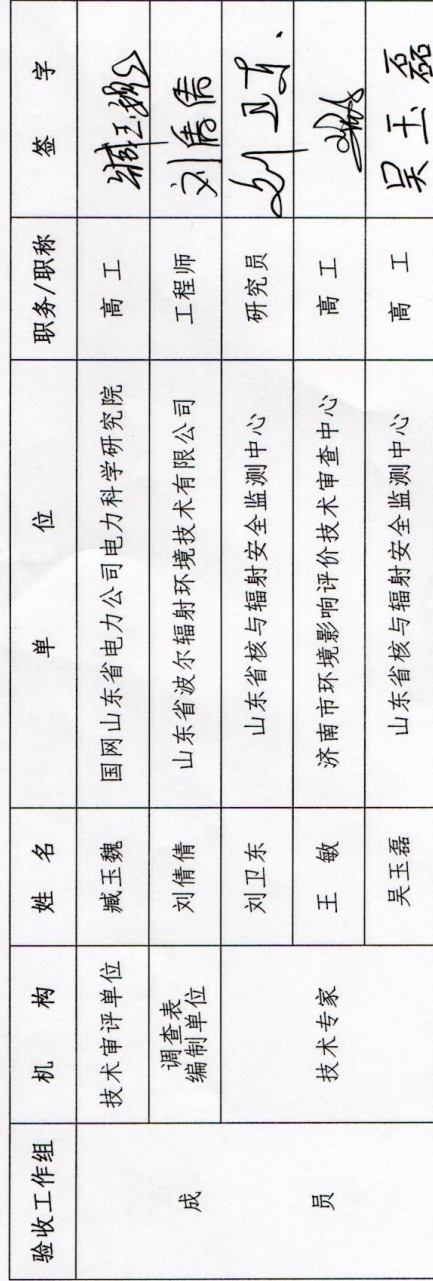 验收工作组 机 构 姓 名 单 位 职务/职称 签 字
成 员
技术审评单位 臧玉魏 国网山东省电力公司电力科学研究院 高 工 臧玉魏
调查表
编制单位 刘倩倩 山东省波尔辐射环境技术有限公司 工程师 刘倩倩
技术专家 刘卫东 山东省核与辐射安全监测中心 研究员 刘卫东
王 敏 济南市环境影响评价技术审查中心 高 工
吴玉磊 山东省核与辐射安全监测中心 高 工 吴玉磊